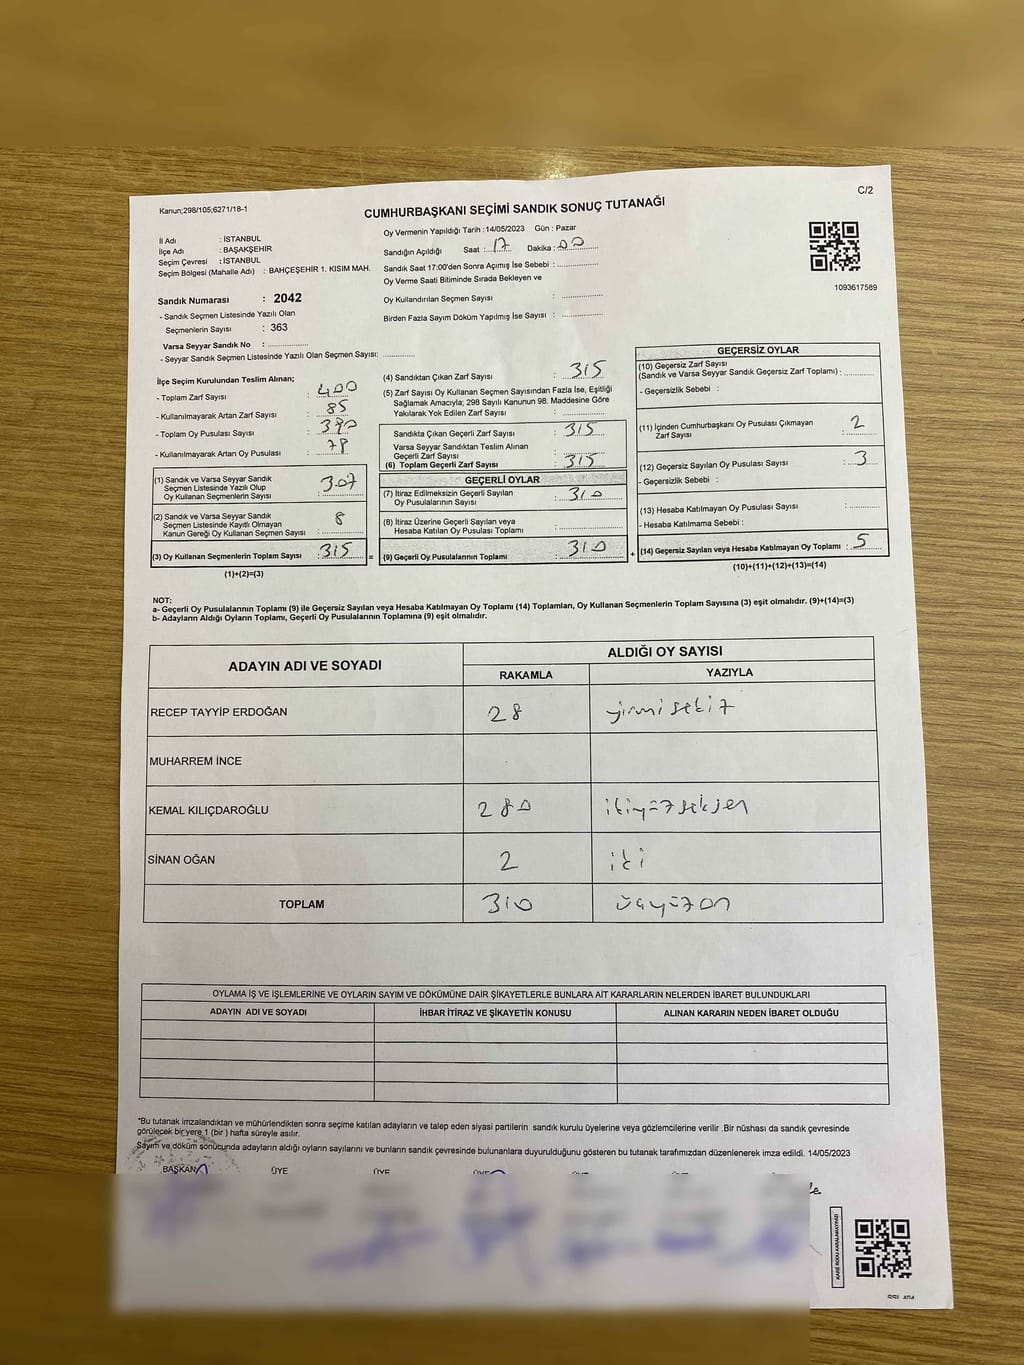 Kanun;298/105;6271/18-1
C/2
CUMHURBAŞKANI SEÇİMİ SANDIK SONUÇ TUTANAĞI
İl Adı : İSTANBUL
İlçe Adı : BAŞAKŞEHİR
Seçim Çevresi : İSTANBUL
Seçim Bölgesi (Mahalle Adı) : BAHÇEŞEHİR 1. KISIM MAH.
Sandık Numarası : 2042
- Sandık Seçmen Listesinde Yazılı Olan
Seçmenlerin Sayısı : 363
Varsa Seyyar Sandık No :
- Seyyar Sandık Seçmen Listesinde Yazılı Olan Seçmen Sayısı:
Oy Vermenin Yapıldığı Tarih :14/05/2023 Gün : Pazar
Sandığın Açıldığı Saat : 17 Dakika : 00
Sandık Saat 17:00'den Sonra Açımış İse Sebebi :
Oy Verme Saati Bitiminde Sırada Bekleyen ve
Oy Kullandırılan Seçmen Sayısı :
Birden Fazla Sayım Döküm Yapılmış İse Sayısı :
1093617589
İlçe Seçim Kurulundan Teslim Alınan;
- Toplam Zarf Sayısı : 400
- Kullanılmayarak Artan Zarf Sayısı : 85
- Toplam Oy Pusulası Sayısı :
- Kullanılmayarak Artan Oy Pusulası : 78
(1) Sandık ve Varsa Seyyar Sandık
Seçmen Listesinde Yazılı Olup
Oy Kullanan Seçmenlerin Sayısı : 307
(2) Sandık ve Varsa Seyyar Sandık
Seçmen Listesinde Kayıtlı Olmayan
Kanun Gereği Oy Kullanan Seçmen Sayısı : 8
(3) Oy Kullanan Seçmenlerin Toplam Sayısı : 315 =
(1)+(2)=(3)
(4) Sandıktan Çıkan Zarf Sayısı : 315
(5) Zarf Sayısı Oy Kullanan Seçmen Sayısından Fazla İse, Eşitliği
Sağlamak Amacıyla; 298 Sayılı Kanunun 98. Maddesine Göre
Yakılarak Yok Edilen Zarf Sayısı :
Sandıkta Çıkan Geçerli Zarf Sayısı : 315
Varsa Seyyar Sandıktan Teslim Alınan
Geçerli Zarf Sayısı :
(6) Toplam Geçerli Zarf Sayısı : 315
GEÇERLİ OYLAR
(7) İtiraz Edilmeksizin Geçerli Sayılan
Oy Pusulalarının Sayısı : 310
(8) İtiraz Üzerine Geçerli Sayılan veya
Hesaba Katılan Oy Pusulası Toplamı :
(9) Geçerli Oy Pusulalarının Toplamı : 310 +
GEÇERSİZ OYLAR
(10) Geçersiz Zarf Sayısı
(Sandık ve Varsa Seyyar Sandık Geçersiz Zarf Toplamı) :
- Geçersizlik Sebebi :
(11) İçinden Cumhurbaşkanı Oy Pusulası Çıkmayan
Zarf Sayısı : 2
(12) Geçersiz Sayılan Oy Pusulası Sayısı : 3
- Geçersizlik Sebebi :
(13) Hesaba Katılmayan Oy Pusulası Sayısı :
- Hesaba Katılmama Sebebi :
(14) Geçersiz Sayılan veya Hesaba Katılmayan Oy Toplamı : 5
(10)+(11)+(12)+(13)=(14)
NOT:
a- Geçerli Oy Pusulalarının Toplamı (9) ile Geçersiz Sayılan veya Hesaba Katılmayan Oy Toplamı (14) Toplamları, Oy Kullanan Seçmenlerin Toplam Sayısına (3) eşit olmalıdır. (9)+(14)=(3)
b- Adayların Aldığı Oyların Toplamı, Geçerli Oy Pusulalarının Toplamına (9) eşit olmalıdır.
ADAYIN ADI VE SOYADI
ALDIĞI OY SAYISI
RAKAMLA YAZIYLA
RECEP TAYYİP ERDOĞAN 28 yirmisekiz
MUHARREM İNCE
KEMAL KILIÇDAROĞLU 280 ikiyüzseksen
SİNAN OĞAN 2 iki
TOPLAM 310 üçyüzon
OYLAMA İŞ VE İŞLEMLERİNE VE OYLARIN SAYIM VE DÖKÜMÜNE DAİR ŞİKAYETLERLE BUNLARA AİT KARARLARIN NELERDEN İBARET BULUNDUKLARI
ADAYIN ADI VE SOYADI İHBAR İTİRAZ VE ŞİKAYETİN KONUSU ALINAN KARARIN NEDEN İBARET OLDUĞU
*Bu tutanak imzalandıktan ve mühürlendikten sonra seçime katılan adayların ve talep eden siyasi partilerin sandık kurulu üyelerine veya gözlemcilerine verilir .Bir nüshası da sandık çevresinde
görülecek bir yere 1 (bir ) hafta süreyle asılır.
Sayım ve döküm sonucunda adayların aldığı oyların sayılarını ve bunların sandık çevresinde bulunanlara duyurulduğunu gösteren bu tutanak tarafımızdan düzenlenerek imza edildi. 14/05/2023
BAŞKAN ÜYE ÜYE ÜYE
KARE KODU KARALAMAYINIZ!